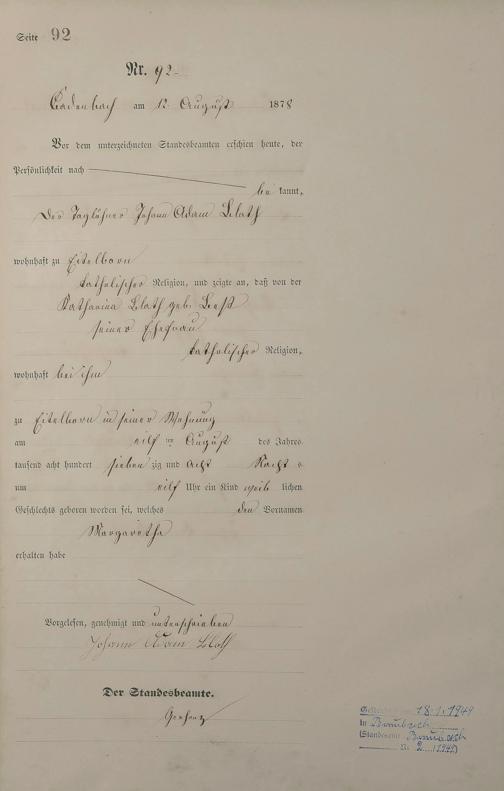 Seite 92
Nr. 92.
Cadenbach am 12. August 1878
Vor dem unterzeichneten Standesbeamten erschien heute, der
Persönlichkeit nach
be kannt,
Der Taglöhner Johann Adam Blath
wohnhaft zu Eitelborn
katholischer Religion, und zeigte an, daß von der
Katharina Blath geb.
seiner Ehefrau
katholischer Religion,
wohnhaft bei ihm
zu Eitelborn in seiner Wohnung
am eilf ten August des Jahres
tausend acht hundert sieben zig und acht Nachts
um eilf Uhr ein Kind weib lichen
Geschlechts geboren worden sei, welches den Vornamen
Margaretha
erhalten habe
Vorgelesen, genehmigt und unterschrieben
Johann Adam Blath
Der Standesbeamte.
18.1.1949
in Braubach
(Standesamt Braubach
Nr. 2 /1949)